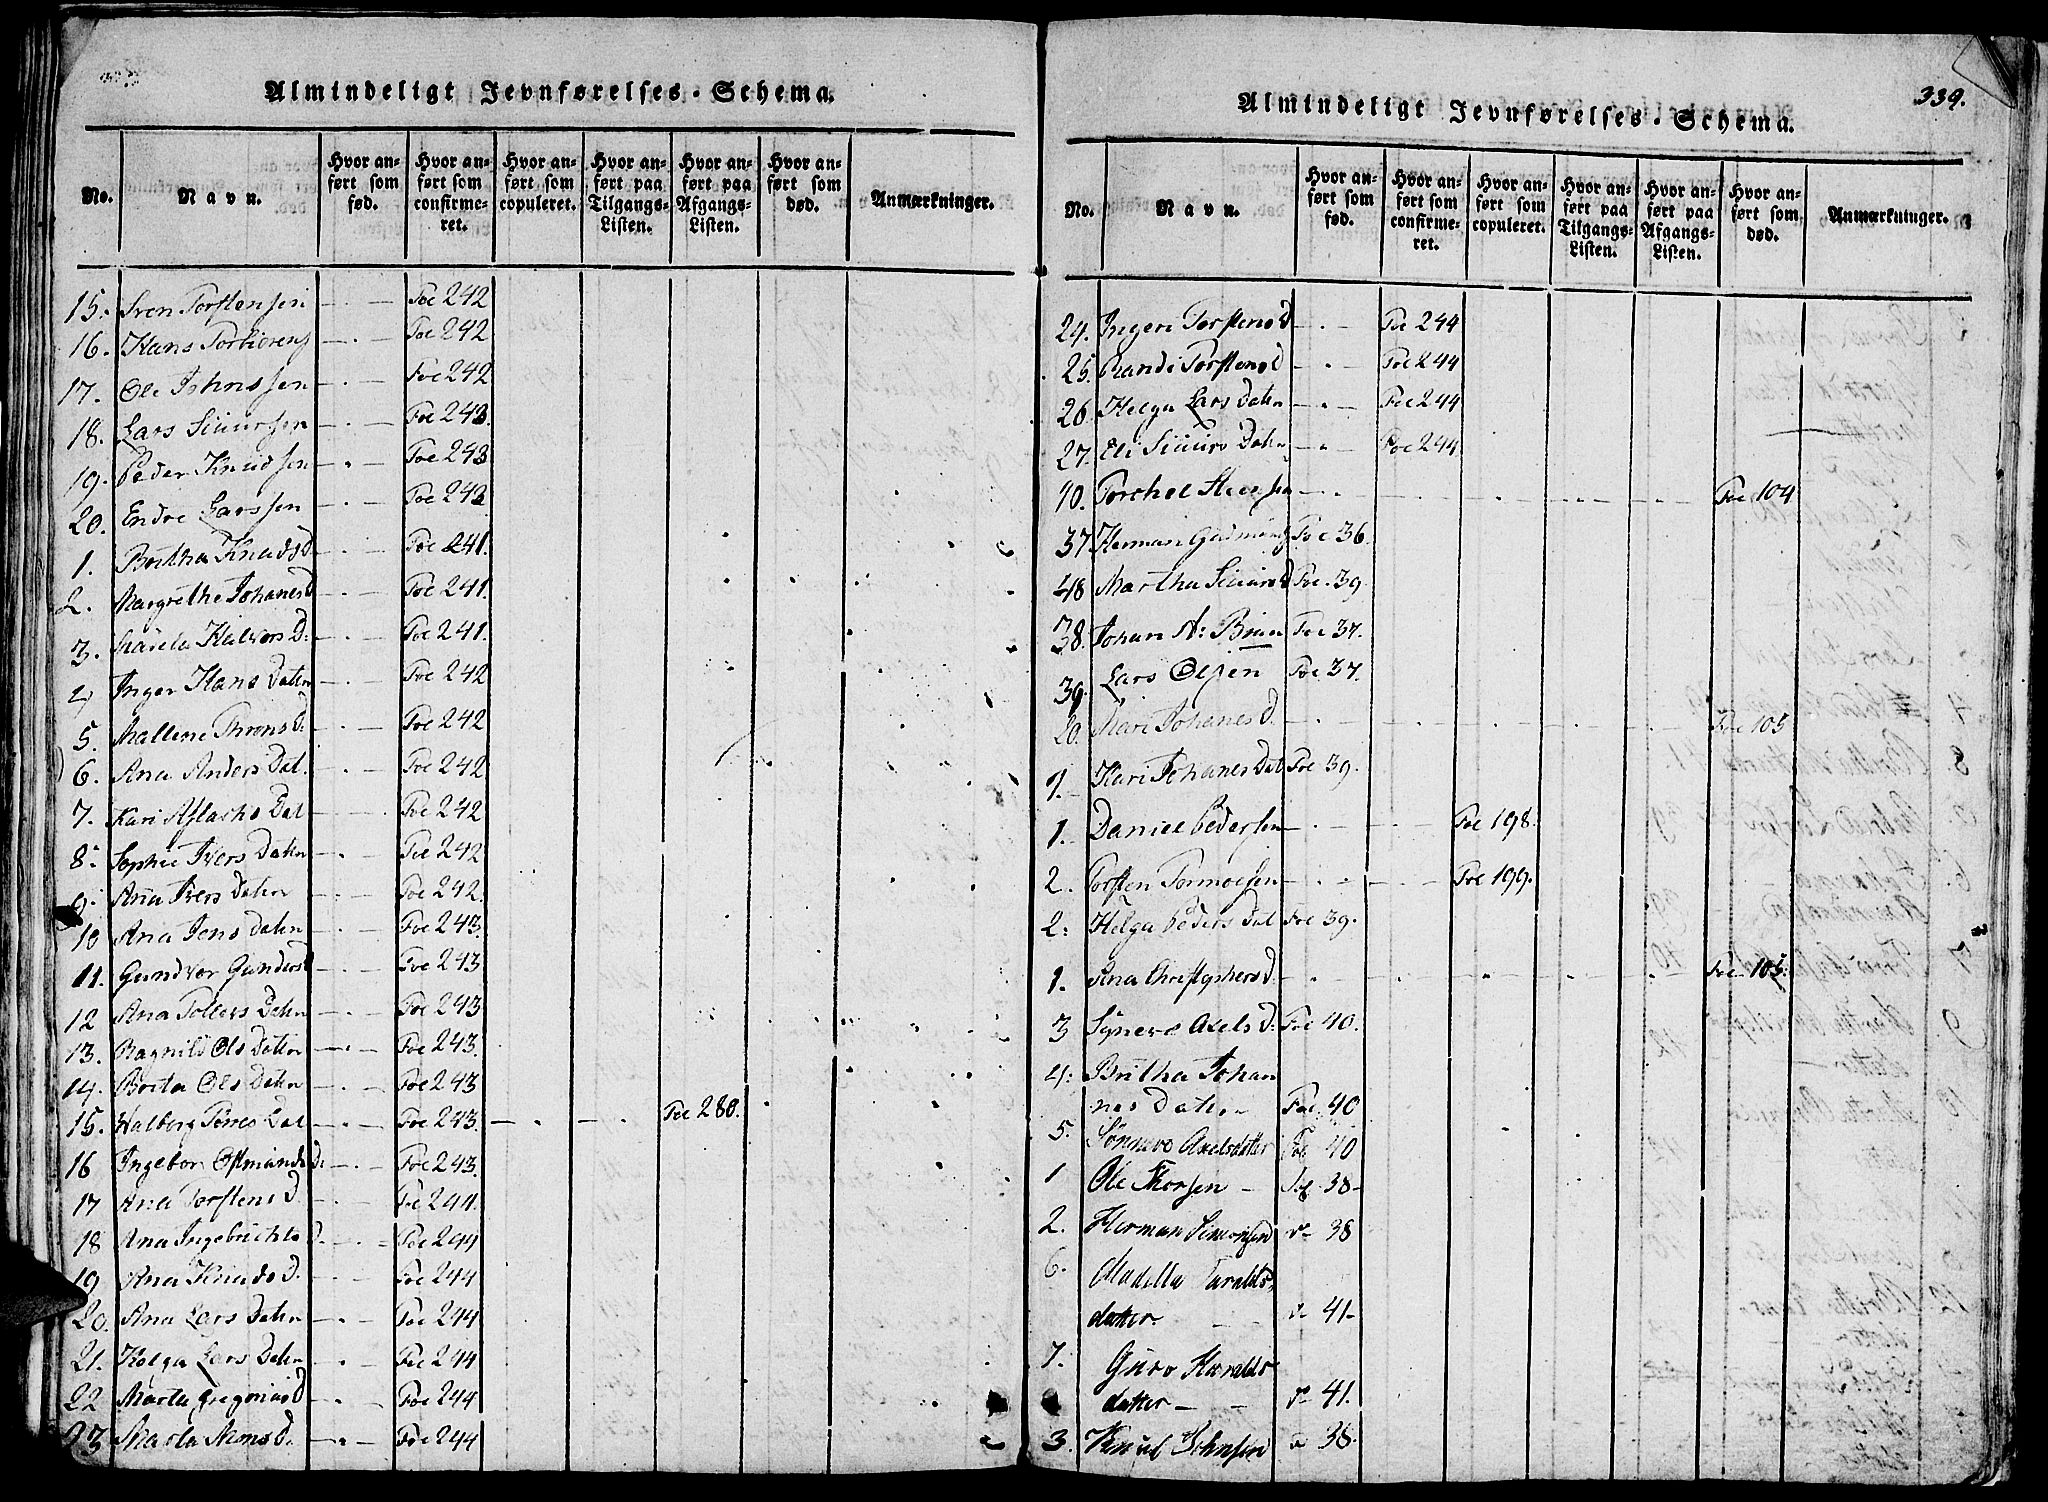 Almindeligt Jevnførelses-Schema.
No.
Navn.
Hvor an-
ført som
fød.
Hvor an-
ført som
confirme-
ret.
Hvor an-
ført som
copuleret.
Hvor an-
ført paa
Tilgangs-
Listen.
Hvor an-
ført paa
Afgangs-
Listen.
Hvor an-
ført som
død.
Anmærkninger.
15. Sven Torstensen — . — Foe 242
16. Hans Torbiørens — . — Foe 242
17. Ole Johnssen — . — Foe 242
18. Lars Siursen — . — Foe 243.
19. Peder Knudsen — . — Foe 243
20. Endre Larssen — . — Foe 243
1. Britha Knudsd. — . — Foe 241.
2. Margrethe Johanesd — . — Foe 241.
3. Halvors D: — . — Foe 241.
4 Inger Hans Daten — . — Foe 242
5. Mallene Throns D. — . — Foe 242
6. Ana Anders Dat. — . — Foe 242
7. Kari Aslachs Dat — . — Foe 242
8. Sophie Ivers Daten — . — Foe 242
9. Ana Ivers Daten — . — Foe 242.
10 Ana Jens Daten — . — Foe 243.
11. Gundvor Gundersd — . — Foe 243
12 Ana Tollevs Daten — . — Foe 243
13. Ragnild Ols Daten — . — Foe 243.
14. Borta Ols Daten — . — Foe 243
15. Valborg Tørres Dat — . — Foe 243. — . — . — Foe 280.
16 Ingebor D: — . — Foe 243.
17 Ana Torstens D. — . — Foe 244.
18 Ana Ingebrichts D. — . — Foe 244
19 Ana Knuds D. — . — Foe 244
20. Ana Lars Daten — . — Foe 244
21. Helga Lars Daten — . — Foe 244
22 Marta D — . — Foe 244
23 Marta D. — . — Foe 244
339.
Almindeligt Jevnførelses-Schema.
No.
Navn.
Hvor an-
ført som
fød.
Hvor an-
ført som
confirme-
ret.
Hvor an-
ført som
copuleret.
Hvor an-
ført paa
Tilgangs-
Listen.
Hvor an-
ført paa
Afgangs-
Listen.
Hvor an-
ført som
død.
Anmærkninger.
24. Ingeri Torstensd — . — Foe 244
25. Randi Torstensd — . — Foe 244
26 Helga Lars Daten — . — Foe 244
27. Eli Siurs Daten — . — Foe 244
10. Torchel — . — Foe 104
37 Herman Foe 36.
48 Martha Siursd Foe. 39
38. Johan A: Brun Foe 37.
39. Lars Olsen Foe 37.
20. Mari Johanes D. — . — Foe 105
1. Kari Johanes Dat Foe 39.
1. Daniel Pedersen — . — Foe 198.
2. Torsten Tormoesen — . — Foe 199.
2: Helga Peders Dat Foe 39.
1. Ana Christophersd. — . — Foe 105.
3 Syneve Axels D: Foe 40.
4: Britha Johan
nes Daten — Foe. 40
5. Sønneve Axelsdatter Fol 40
1 Ole Thorsen — Fol. 38-
2. Herman Simonsen 38
6. Madella Taralds
datter. — 41-
7. Guro Haralds
datter — — 41.
3. Knud Johnsen 38.